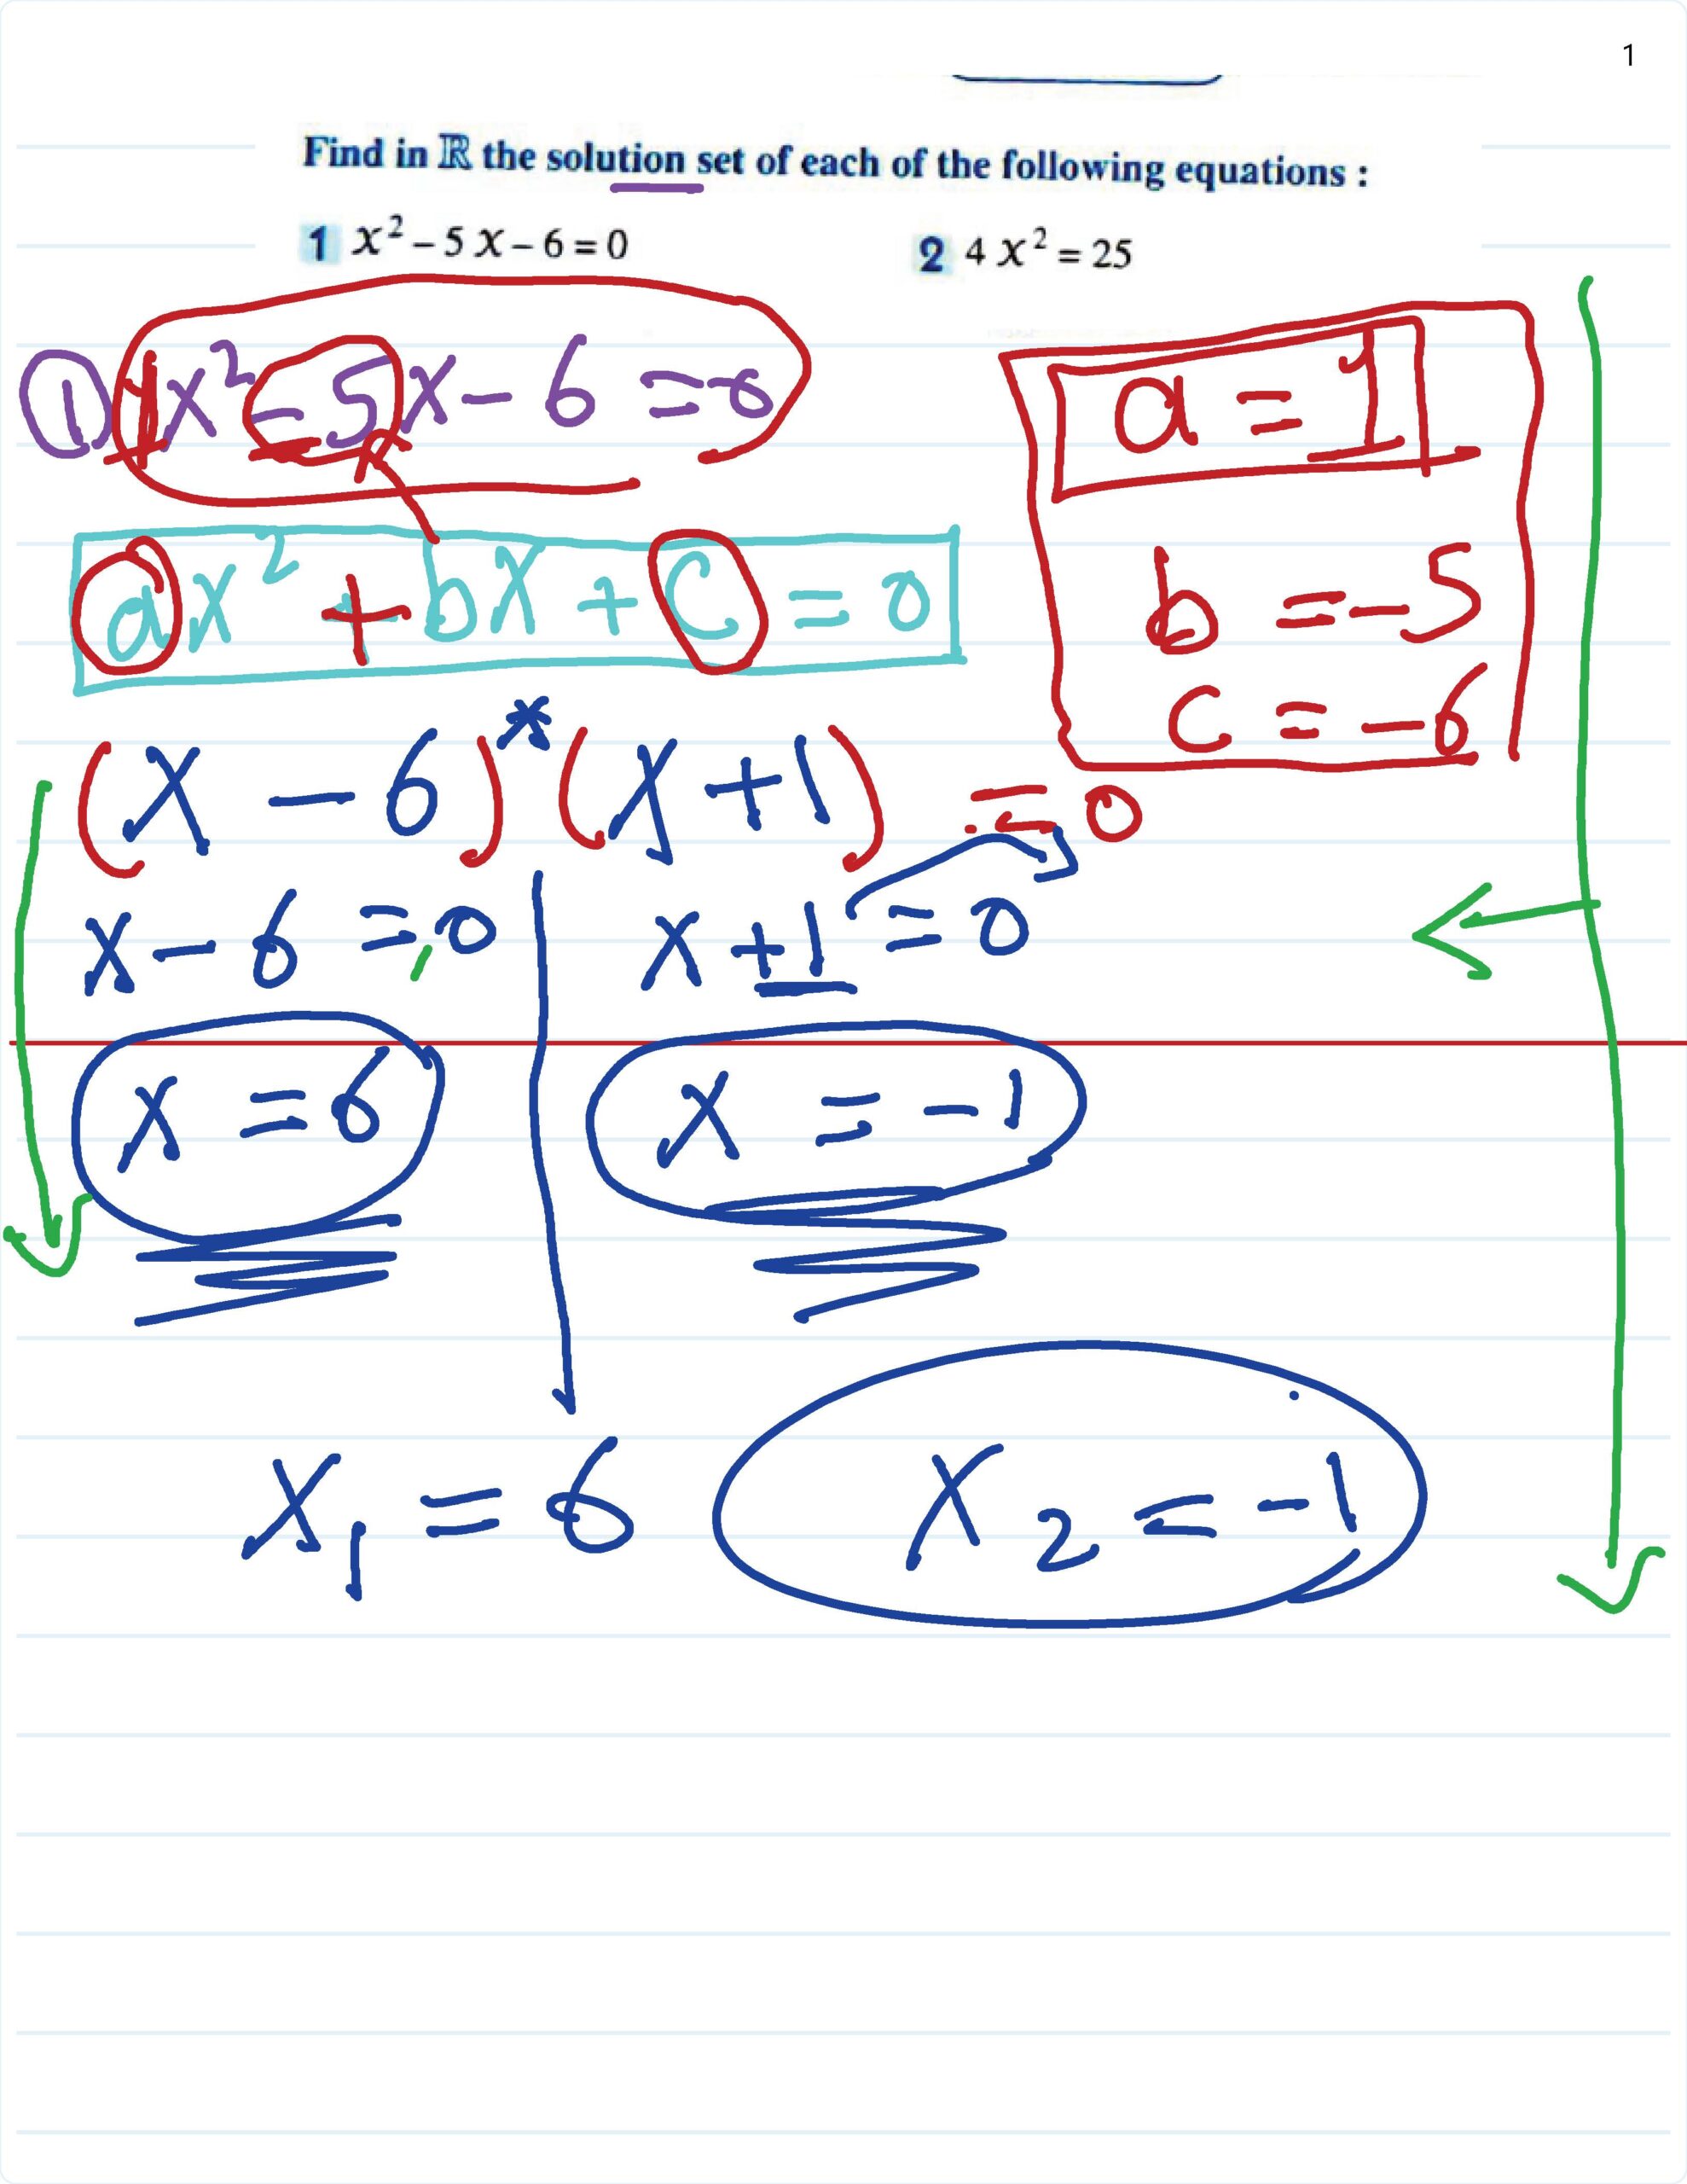 1
Find in ℝ the solution set of each of the following equations :
1 x² – 5 x – 6 = 0
2 4 x² = 25
① 1x² – 5x – 6 = 0
a = 1
ax² + bx + c = 0
b = –5
c = –6
(x – 6) * (x + 1) = 0
x – 6 = 0
x + 1 = 0
x = 6
x = –1
x₁ = 6
x₂ = –1